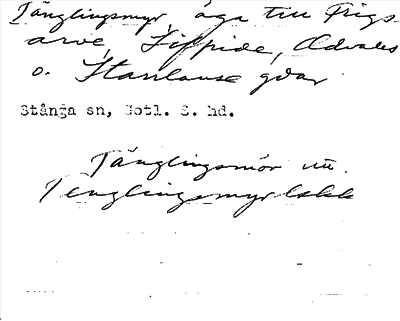 Tänglingsmyr, äga till Frigs-
arve, Liffride, Ådvales
o. Stanlause gdar
Stånga sn, Gotl. S. hd.
Tänglingsmör uu.
Tenglingsmyr lskk